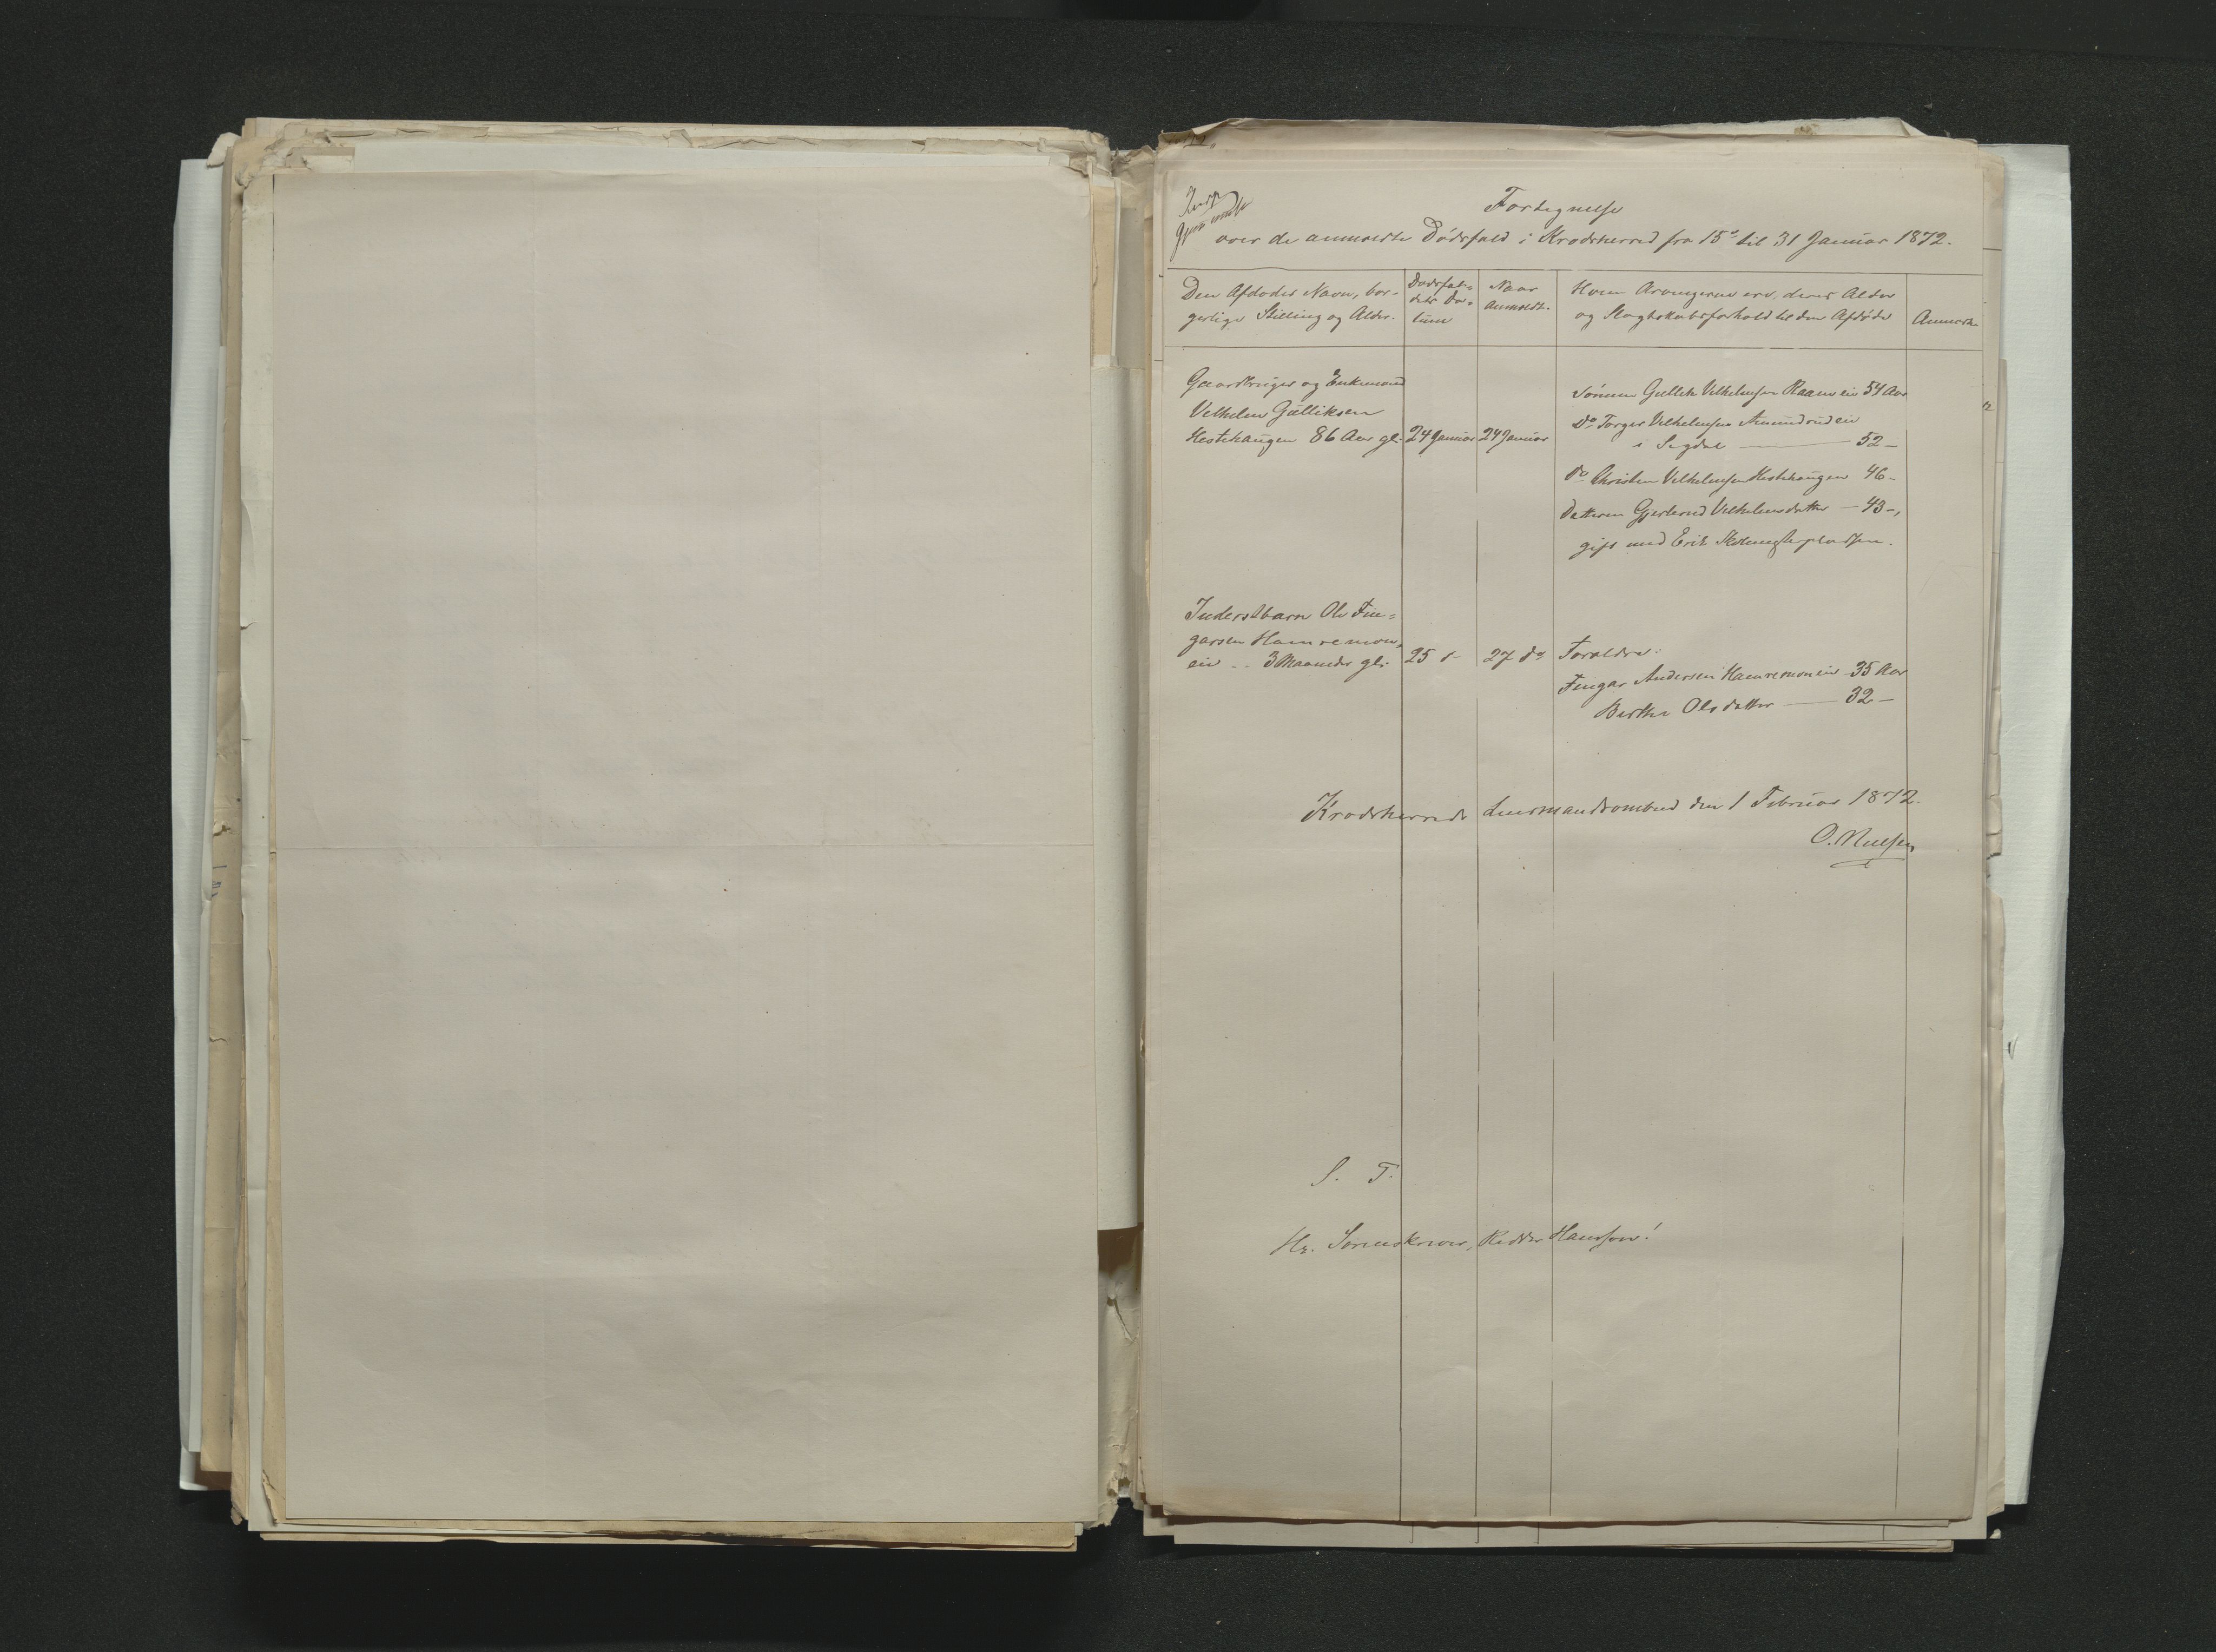 Fortegnelse
over de anmeldte Dødsfald i Krødsherred fra 15de til 31 Januar 1872.
Den Afdødes Navn, bor-
gerlige Stilling og Alder.
Dødsfal-
dets Da-
tum
Naar
anmeldt.
Hvem Arvingerne ere, deres Alder
og Slægtskabsforhold til den Afdøde
Anmærkn
Gaardbruger og Enkemand
Velhelm Gulliksen
Hestehaugen 86 Aar gl. 24 Januar 24 Januar
Sønnen Gullek Velhelmsen Raaen ein 54 Aar
Do Torger Velhelmsen Amundrud ein
i Sigdal — 52 —
do Christen Velhelmsen Hestehaugen 46 -
Datteren Gjertrud Velhelmsdatter — 43 -,
gift med Erik pladsen.
Inderstbarn Ole Fin=
garsen Hamremoen=
ein .. 3 Maaneder gl. 25 d 27 do Forældre:
Fingar Andersen Hamremoen ein 35 Aar
Berthe Olsdatter — 32 —
Krødsherreds Lensmandsombud den 1 Februar 1872.
O. Nielsen
S. T.
Hr. Sorenskriver, Ridder Hansson!